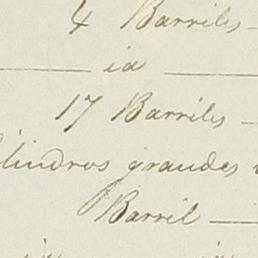 4 Barriles
id
17 Barriles
ilindros grandes
Barril